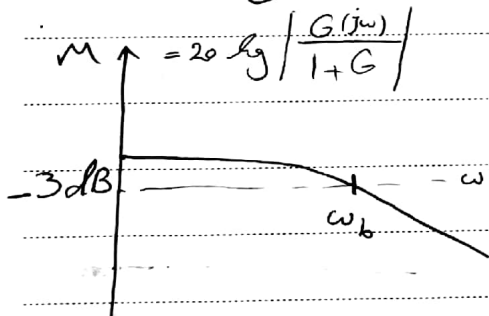 M = 20 lg | G(jω) / 1 + G |
-3dB
ω
ω_b